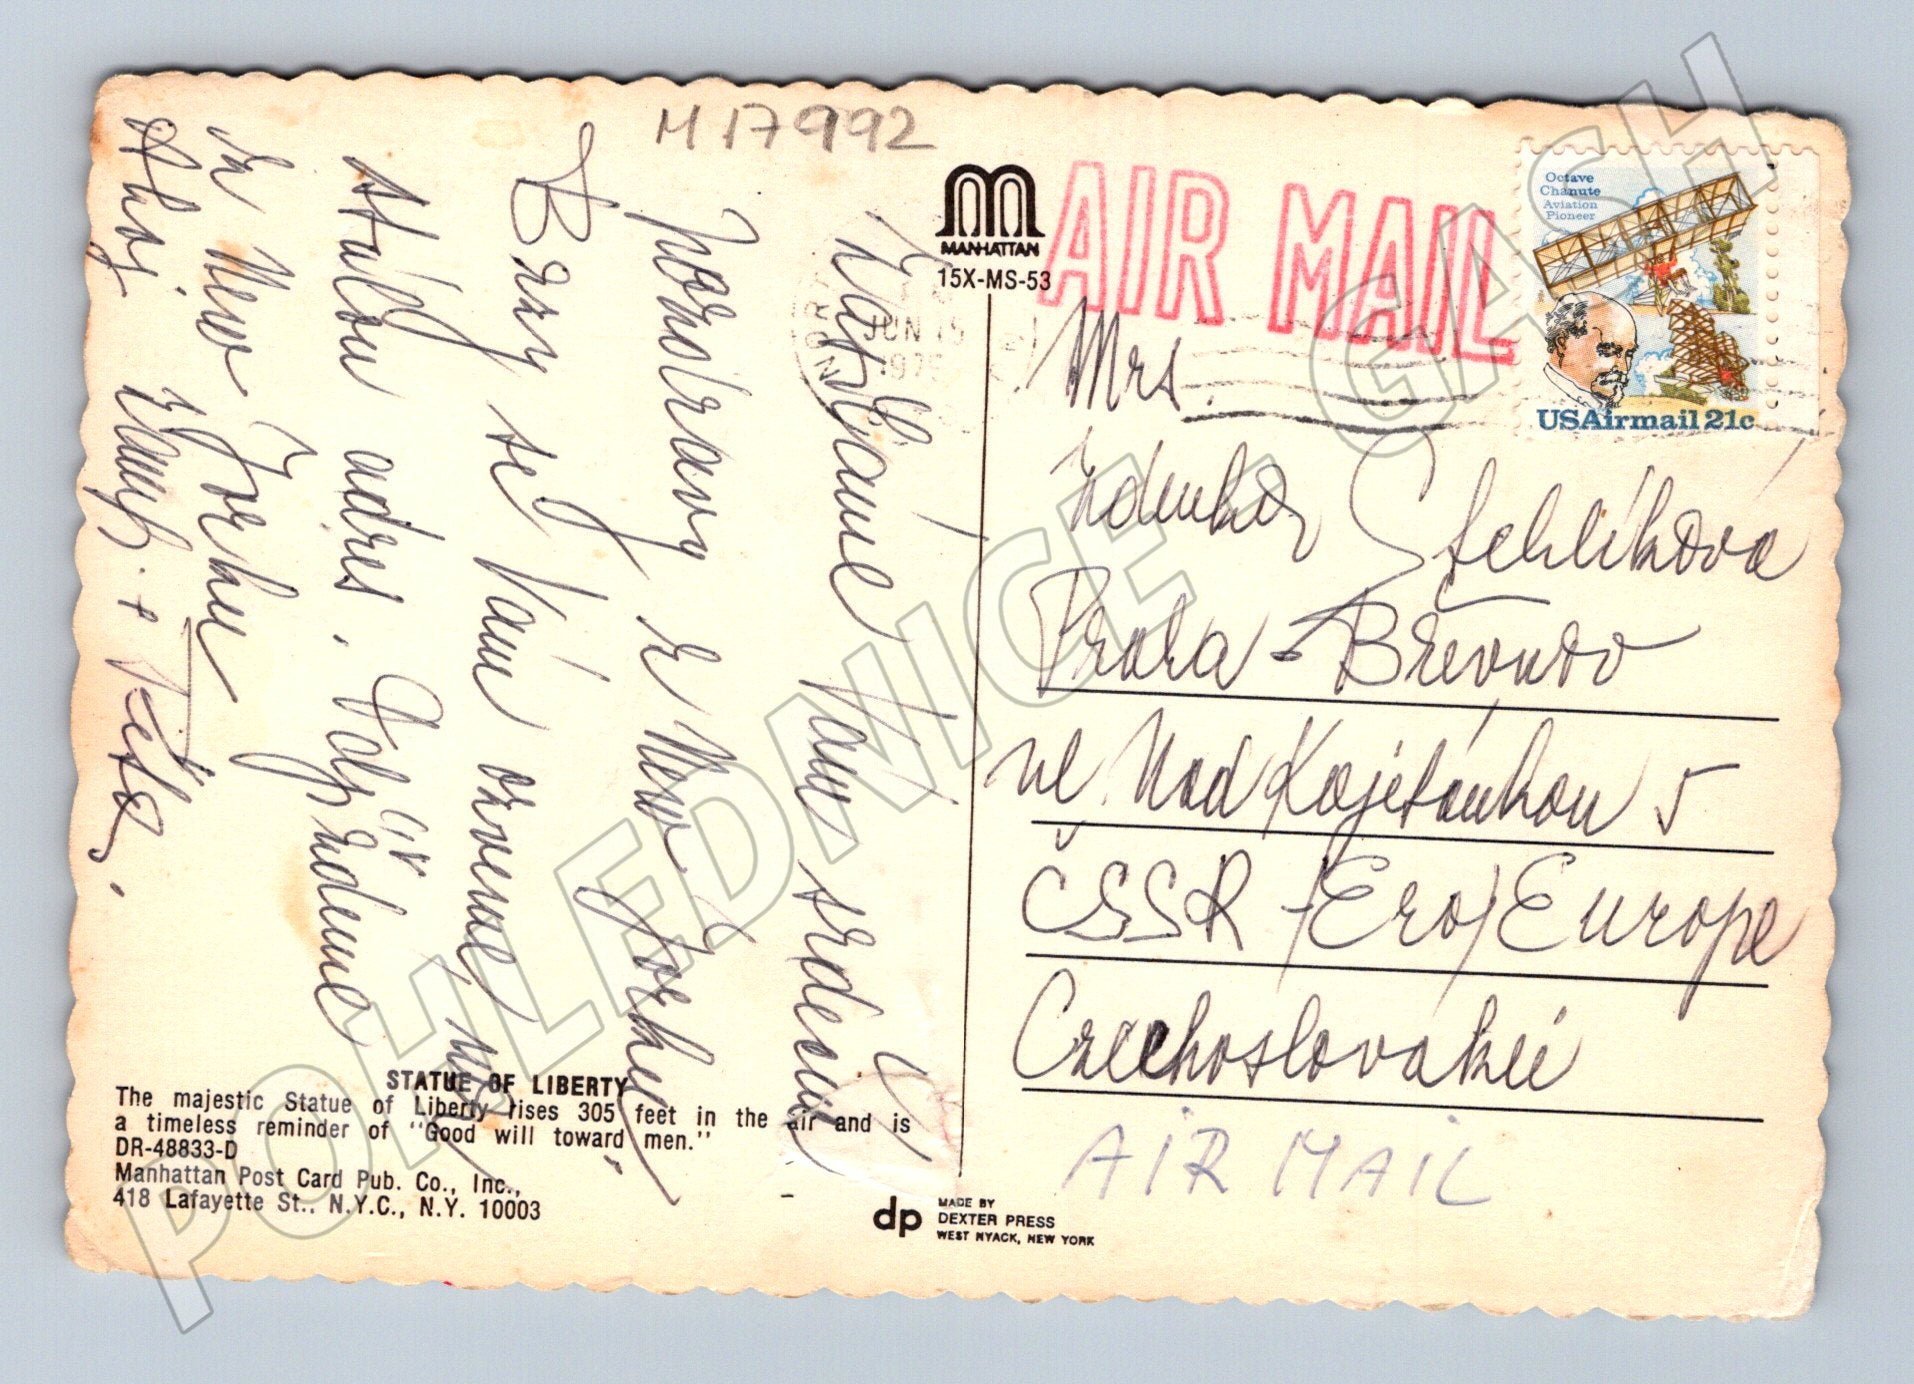 M 17992
MANHATTAN
15X-MS-53
AIR MAIL
Octave
Chanute
Aviation
Pioneer
USAirmail 21c
JUN 15
Zasíláme Vám srdečný
pozdrav z New Yorku.
Brzy se Vám ozveme, máj
stálou adres. Až
z New Yorku
Ahoj
Mrs.
Zdenka Stehlíková
Praha - Břevnov
ul. Nad Kajetánkou 5
ČSSR - /Ero/ Europe
Czechoslovakii
AIR MAIL
STATUE OF LIBERTY
The majestic Statue of Liberty rises 305 feet in the air and is
a timeless reminder of "Good will toward men."
DR-48833-D
Manhattan Post Card Pub. Co., Inc.,
418 Lafayette St., N.Y.C., N.Y. 10003
dp
MADE BY
DEXTER PRESS
WEST NYACK, NEW YORK
POHLEDNICE - GASH